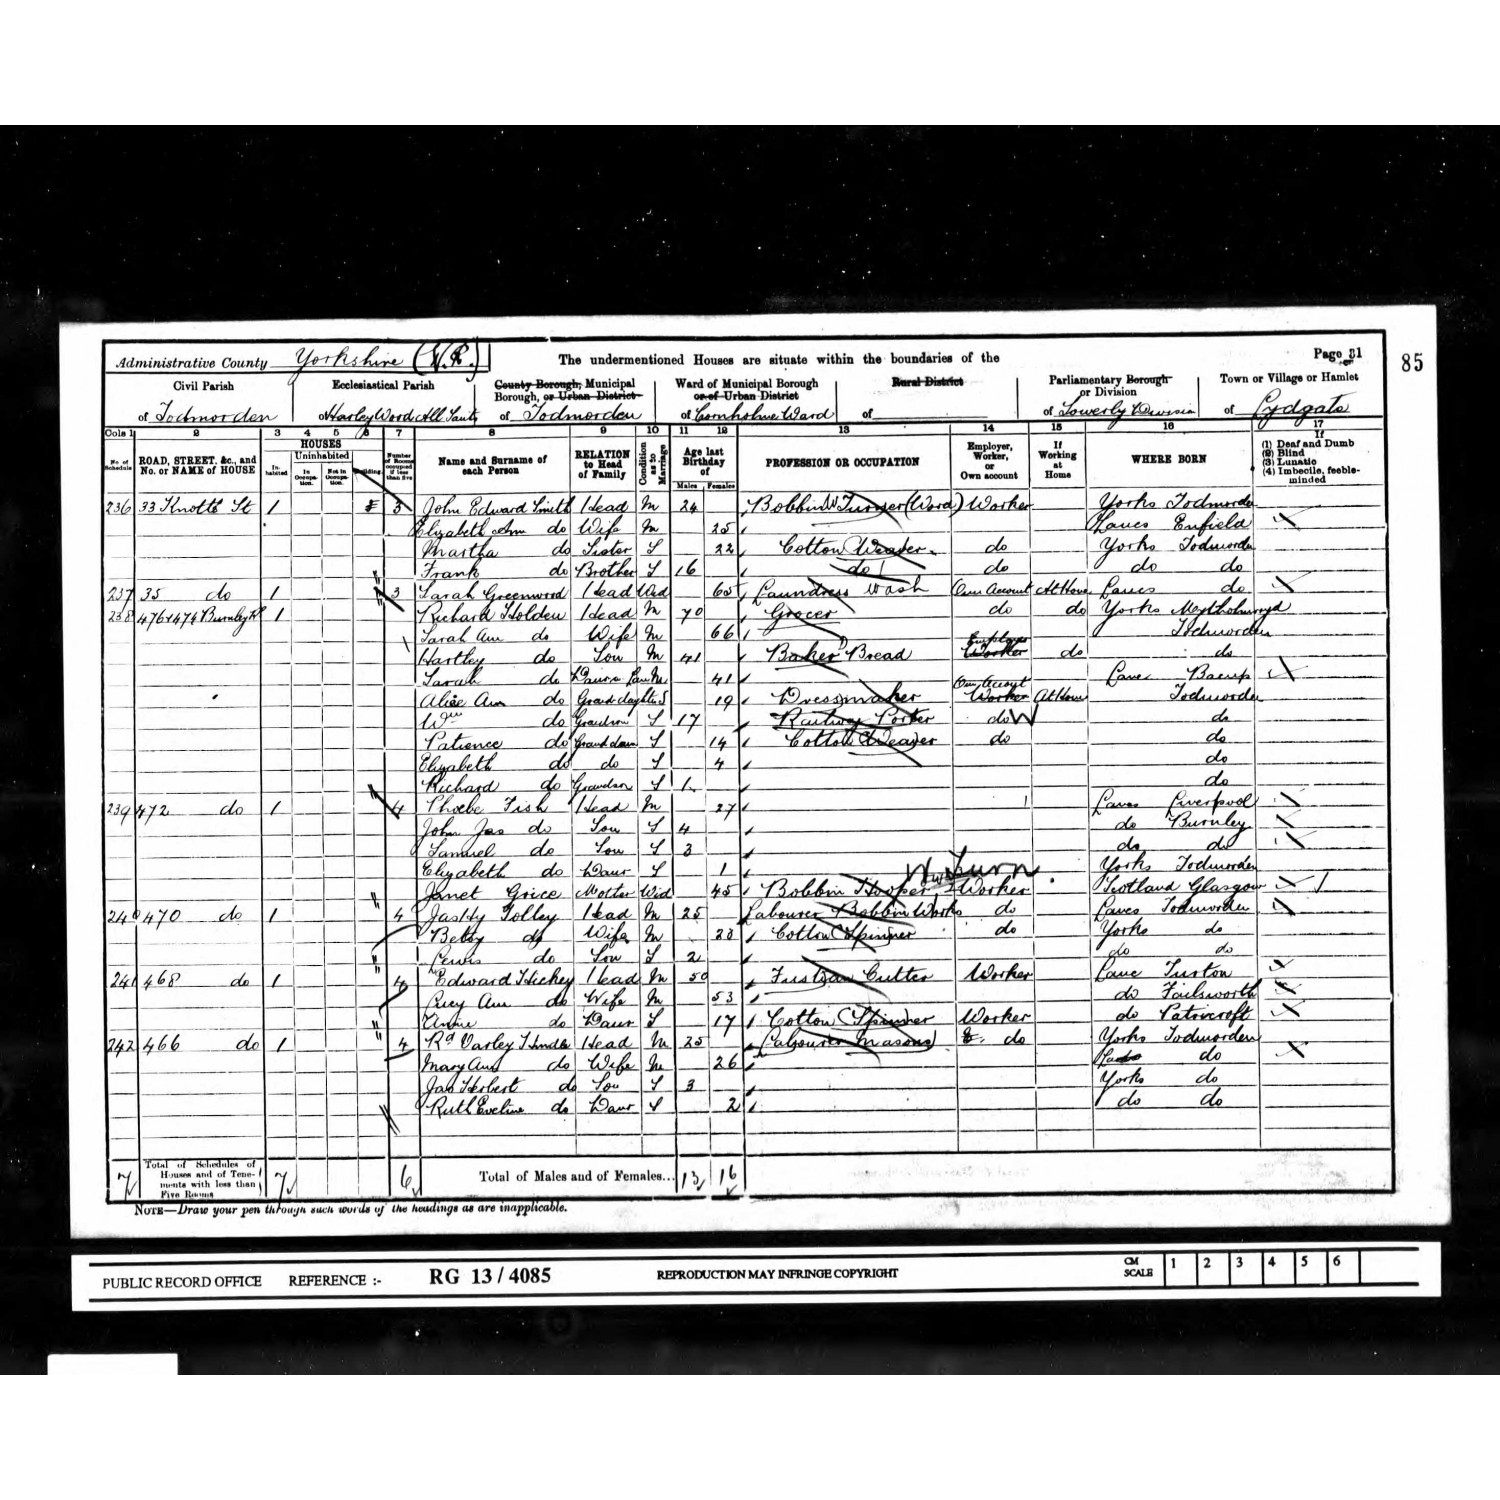 Administrative County Yorkshire (W.R.) The undermentioned Houses are situate within the boundaries of the Page 31
85
Civil Parish of Todmorden
Ecclesiastical Parish of Harley Wood All Saints
County Borough, Municipal Borough, or Urban District of Todmorden
Ward of Municipal Borough or of Urban District of Cornholme Ward
Rural District of
Parliamentary Borough or Division of Sowerby Division
Town or Village or Hamlet of Lydgate
Cols 1 2 3 4 5 6 7 8 9 10 11 12 13 14 15 16 17
No. of Schedule
ROAD, STREET, &c., and No. or NAME of HOUSE
HOUSES
Inhabited
Uninhabited
In Occupation.
Not in Occupation.
Building
Number of Rooms occupied if less than five
Name and Surname of each Person
RELATION to Head of Family
Condition as to Marriage
Age last Birthday of
Males Females
PROFESSION OR OCCUPATION
Employer, Worker, or Own account
If Working at Home
WHERE BORN
If (1) Deaf and Dumb (2) Blind (3) Lunatic (4) Imbecile, feeble-minded
236 33 Knotts St 1 3 John Edward Smith Head M 24 Bobbin Turner (Wood) Worker Yorks Todmorden
Elizabeth Ann do Wife M 25 Lancs Enfield
Martha do Sister S 22 Cotton Weaver do Yorks Todmorden
Frank do Brother S 16 do do do do
237 35 do 1 3 Sarah Greenwood Head Wid 65 Laundress Wash Own Account At Home Lancs do
238 476 & 474 Burnley Rd 1 Richard Holden Head M 70 Grocer do do Yorks Mytholmroyd
Sarah Ann do Wife M 66 Todmorden
Hartley do Son M 41 Baker Bread Employer Worker do do
Sarah do M 41 Lancs Bacup
Alice Ann do Granddaughter S 19 Dressmaker Own Account Worker At Home Todmorden
Wm do Grandson S 17 Railway Porter do W do
Patience do Granddaur S 14 Cotton Weaver do do
Elizabeth do do S 4 do
Richard do Grandson S 1 do
239 472 do 1 4 Phoebe Fish Head M 27 Lancs Liverpool
John Jas do Son S 4 do Burnley
Samuel do Son S 3 do do
Elizabeth do Daur S 1 Yorks Todmorden
Janet Grice Mother Wid 45 Bobbin Hooper Worker Scotland Glasgow
240 470 do 1 4 Jas Hy Tolley Head M 25 Labourer Bobbin Works do Lancs Todmorden
Betsy do Wife M 23 Cotton Spinner do Yorks do
Lewis do Son S 2 do do
241 468 do 1 4 Edward Hickey Head M 50 Fustian Cutter Worker Lanc Turton
Lucy Ann do Wife M 53 do Failsworth
Annie do Daur S 17 Cotton Spinner Worker do Patricroft
242 466 do 1 4 Rd Varley Hindle Head M 25 Labourer Masons do Yorks Todmorden
Mary Ann do Wife M 26 do
Jas Herbert do Son S 3 Yorks do
Ruth Eveline do Daur S 2 do do
7 Total of Schedules of Houses and of Tenements with less than Five Rooms 7 6 Total of Males and of Females... 13 16
NOTE—Draw your pen through such words of the headings as are inapplicable.
PUBLIC RECORD OFFICE REFERENCE :- RG 13 / 4085 REPRODUCTION MAY INFRINGE COPYRIGHT CM SCALE 1 2 3 4 5 6